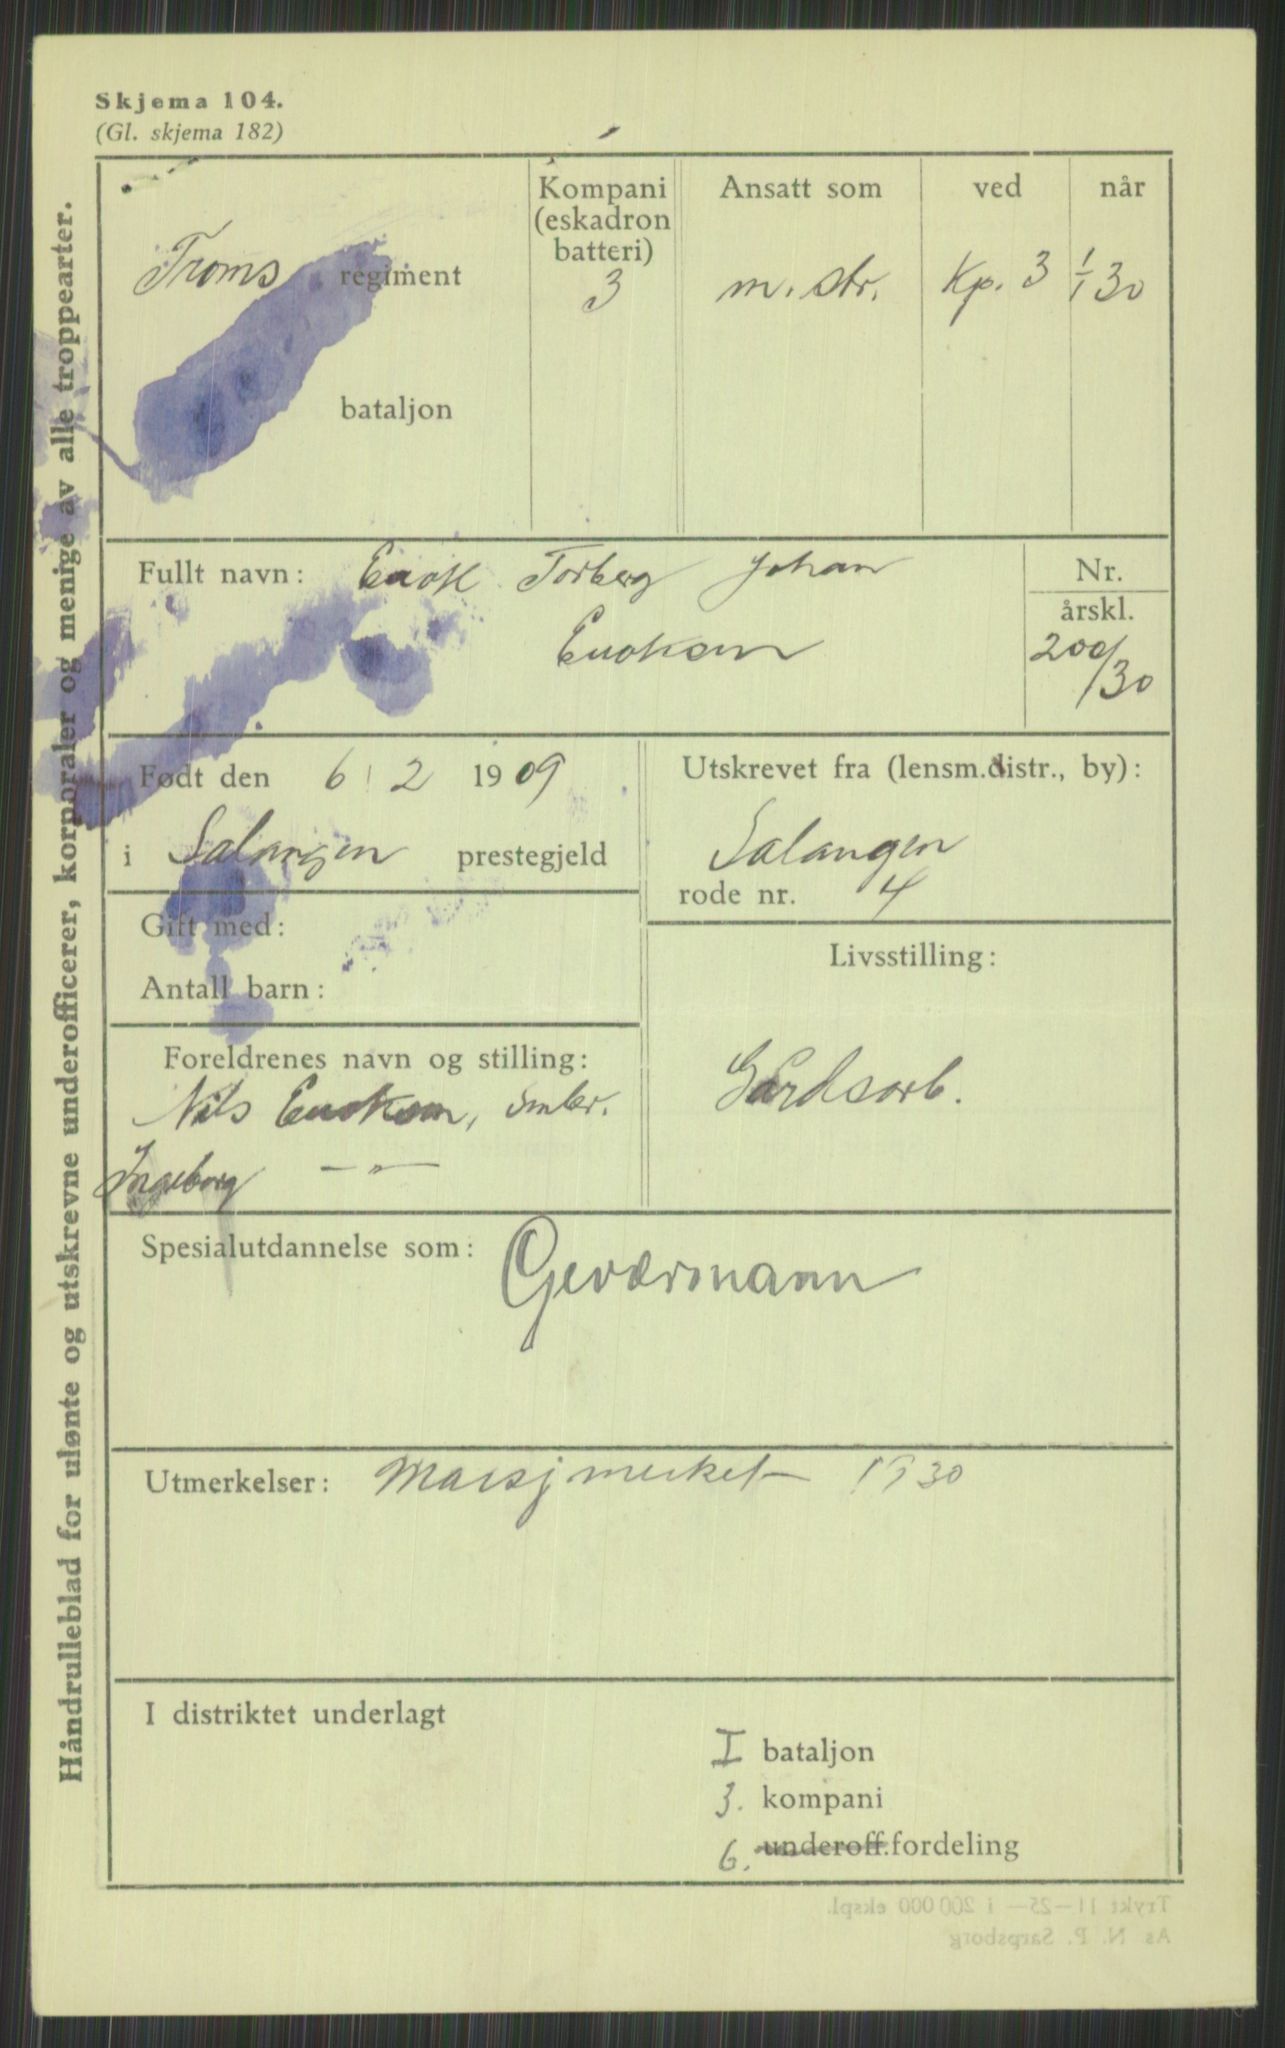 Skjema 104.
(Gl. skjema 182)
Håndrulleblad for ulønte og utskrevne underofficerer, korporaler og menige av alle troppearter.
Troms regiment
bataljon
Kompani
(eskadron
batteri)
3
Ansatt som
m. str.
ved
Kp. 3
når
1/1 30
Fullt navn: Enok Torberg Johan
Enoksen
Nr.
årskl.
200/30
Født den 6/2 1909
i Salangen prestegjeld
Utskrevet fra (lensm.distr., by):
Salangen
rode nr. 4
Gift med:
Antall barn:
Livsstilling:
Gårdsarb.
Foreldrenes navn og stilling:
Nils Enoksen, smbr.
Ingeborg — " —
Spesialutdannelse som: Geværmann
Utmerkelser: Marsjmerket 1930
I distriktet underlagt
I bataljon
3. kompani
6. underoff.fordeling
Trykt 11—25— i 200 000 ekspl.
As N. P. Sarpsborg